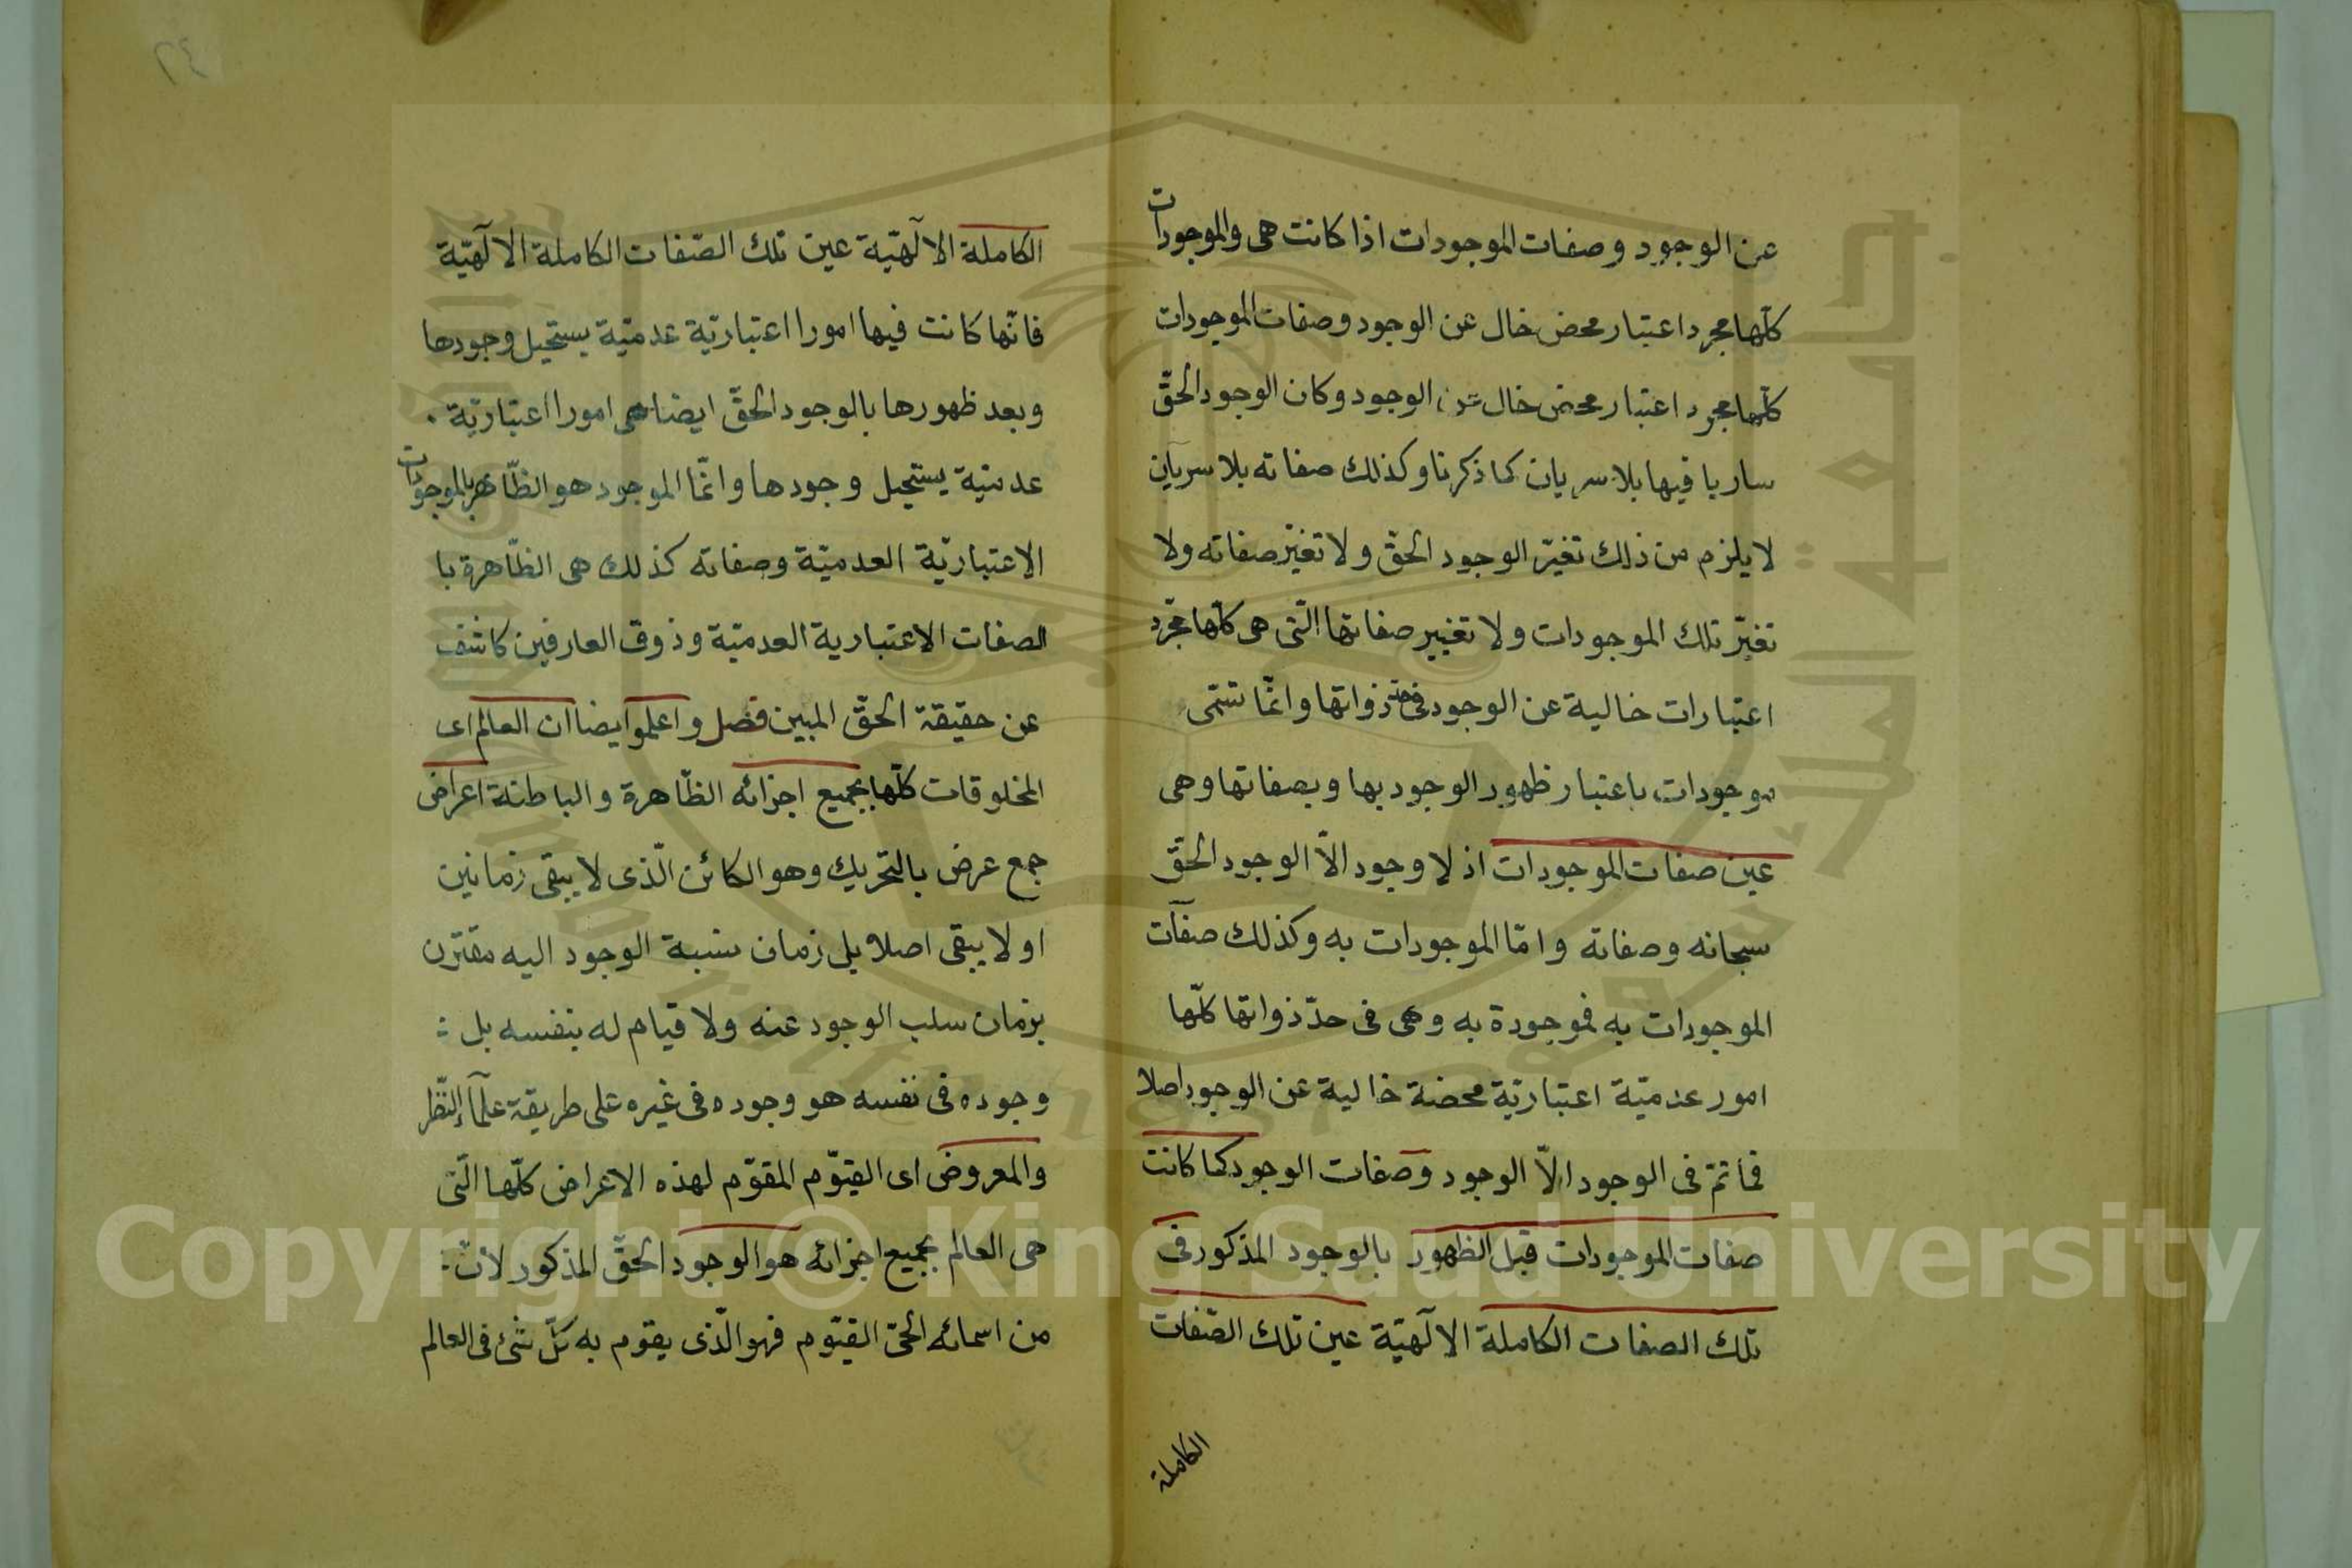 عن الوجود وصفات الموجودات اذا كانت هى والموجودات
كلّها مجرد اعتبار محض خال عن الوجود وصفات الموجودات
كلّها مجرد اعتبار محض خال عن الوجود وكان الوجود الحقّ
ساريا فيها بلا سريان كما ذكرنا وكذلك صفاته بلا سريان
لا يلزم من ذلك تغيّر الوجود الحقّ ولا تغيّر صفاته ولا
تغيّر تلك الموجودات ولا تغيير صفاتها الّتى هى كلّها مجرّد
اعتبارات خالية عن الوجود فى حدّ ذواتها وانّما تسمّى
موجودات باعتبار ظهور الوجود بها وبصفاتها وهى
عين صفات الموجودات اذ لا وجود الاّ الوجود الحقّ
سبحانه وصفاته وامّا الموجودات به وكذلك صفات
الموجودات به فموجودة به وهى فى حدّ ذواتها كلّها
امور عدميّة اعتباريّة محضة خالية عن الوجود اصلا
فما ثمّ فى الوجود الاّ الوجود وصفات الوجود كما كانت
صفات الموجودات قبل الظهور بالوجود المذكور فى
تلك الصفات الكاملة الالٓهيّة عين تلك الصّفات
الكاملة
٢٤
الكاملة الالٓهيّة عين تلك الصّفات الكاملة الالٓهيّة
فانّها كانت فيها امورا اعتباريّة عدميّة يستحيل وجودها
وبعد ظهورها بالوجود الحقّ ايضا هى امورا اعتباريّة .
عدميّة يستحيل وجودها وانّما الموجود هو الظّاهر بالموجودات
الاعتباريّة العدميّة وصفاته كذلك هى الظّاهرة با
لصفات الاعتبارية العدميّة وذوق العارفين كاشف
عن حقيقة الحقّ المبين فصل واعلموا ايضا ان العالم اى
المخلوقات كلّها بجميع اجزائه الظّاهرة والباطنة اعراض
جمع عرض بالتحريك وهو الكائن الّذى لا يبقى زمانين
او لا يبقى اصلا بل زمان نسبة الوجود اليه مقترن
بزمان سلب الوجود عنه ولا قيام له بنفسه بل :
وجوده فى نفسه هو وجوده فى غيره على طريقة علمآء النّظر
والمعروض اى القيّوم المقوّم لهذه الاعراض كلّها الّتى
هى العالم بجميع اجزائه هو الوجود الحقّ المذكور لانّ :
من اسمائه الحىّ القيّوم فهو الّذى يقوم به كلّ شئ فى العالم
Copyright © King Saud University